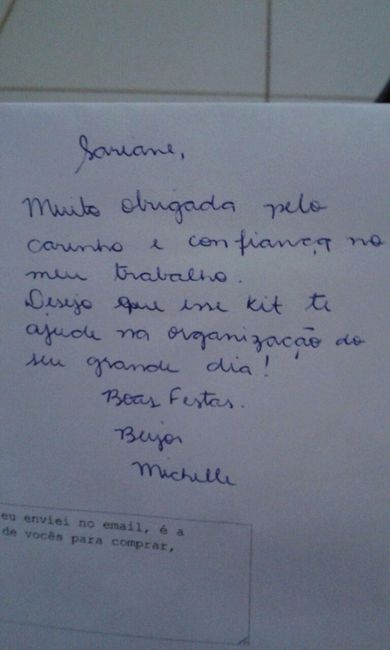 Sariane,
Muito obrigada pelo
carinho e confiança no
meu trabalho.
Desejo que esse kit te
ajude na organização do
seu grande dia!
Boas Festas.
Beijos
Michelle
eu enviei no email, é a
de vocês para comprar,